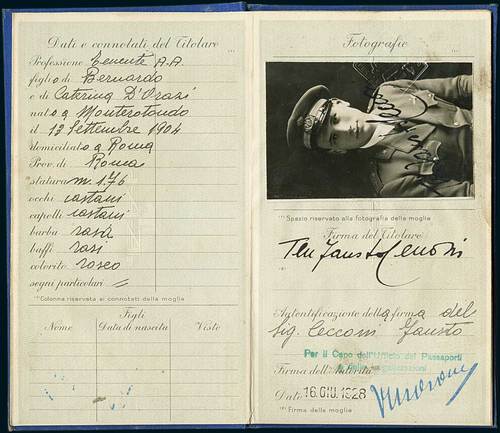 Dati e connotati del Titolare
Professione Tenente A.A.
figlio di Bernardo
e di Caterina D'Orazi
nato a Monterotondo
il 13 Settembre 1904
domiciliato a Roma
Prov. di Roma
statura m. 1.76
occhi castani
capelli castani
barba rasa
baffi rasi
colorito roseo
segni particolari =
(*) Colonna riservata ai connotati della moglie
Figli
Nome Data di nascita Visto
Fotografie
(*) Spazio riservato alla fotografia della moglie
Firma del Titolare
Ten Fausto Cecconi
(*)
Autentificazione della firma del
Sig. Cecconi Fausto
Per il Capo dell'Ufficio dei Passaporti
Firma dell'Autorità
Data 16 GIU. 1928
(*) Firma della moglie